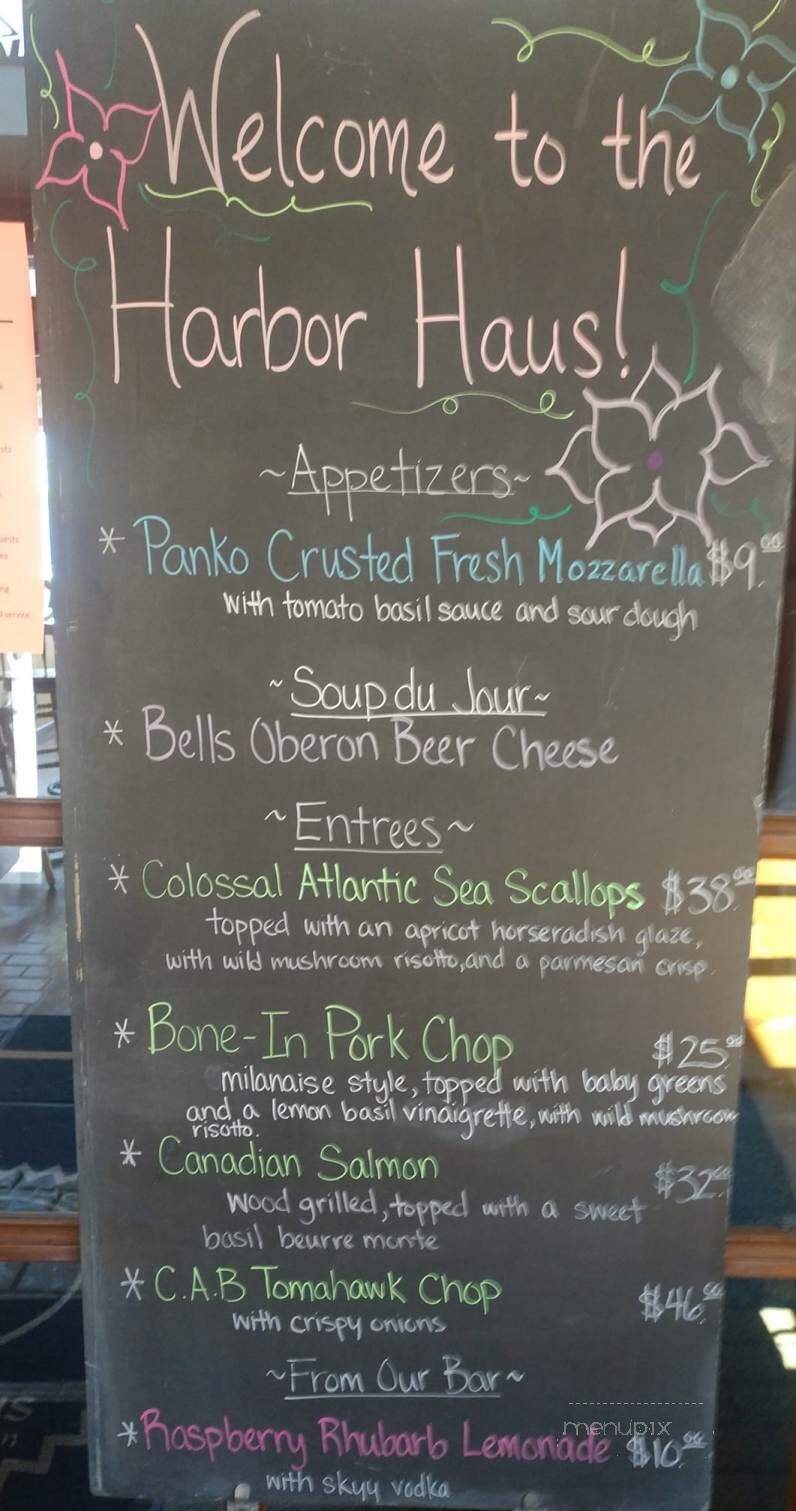 Welcome to the
Harbor Haus!
~Appetizers~
* Panko Crusted Fresh Mozzarella $9.00
with tomato basil sauce and sour dough
~Soup du Jour~
* Bells Oberon Beer Cheese
~Entrees~
* Colossal Atlantic Sea Scallops $38.00
topped with an apricot horseradish glaze,
with wild mushroom risotto, and a parmesan crisp.
* Bone-In Pork Chop $25.00
milanaise style, topped with baby greens
and a lemon basil vinaigrette, with wild mushroom
risotto.
* Canadian Salmon $32.00
wood grilled, topped with a sweet
basil beurre monte
* C.A.B Tomahawk Chop $46.00
with crispy onions
~From Our Bar~
* Raspberry Rhubarb Lemonade $10.00
with skyy vodka
menupix